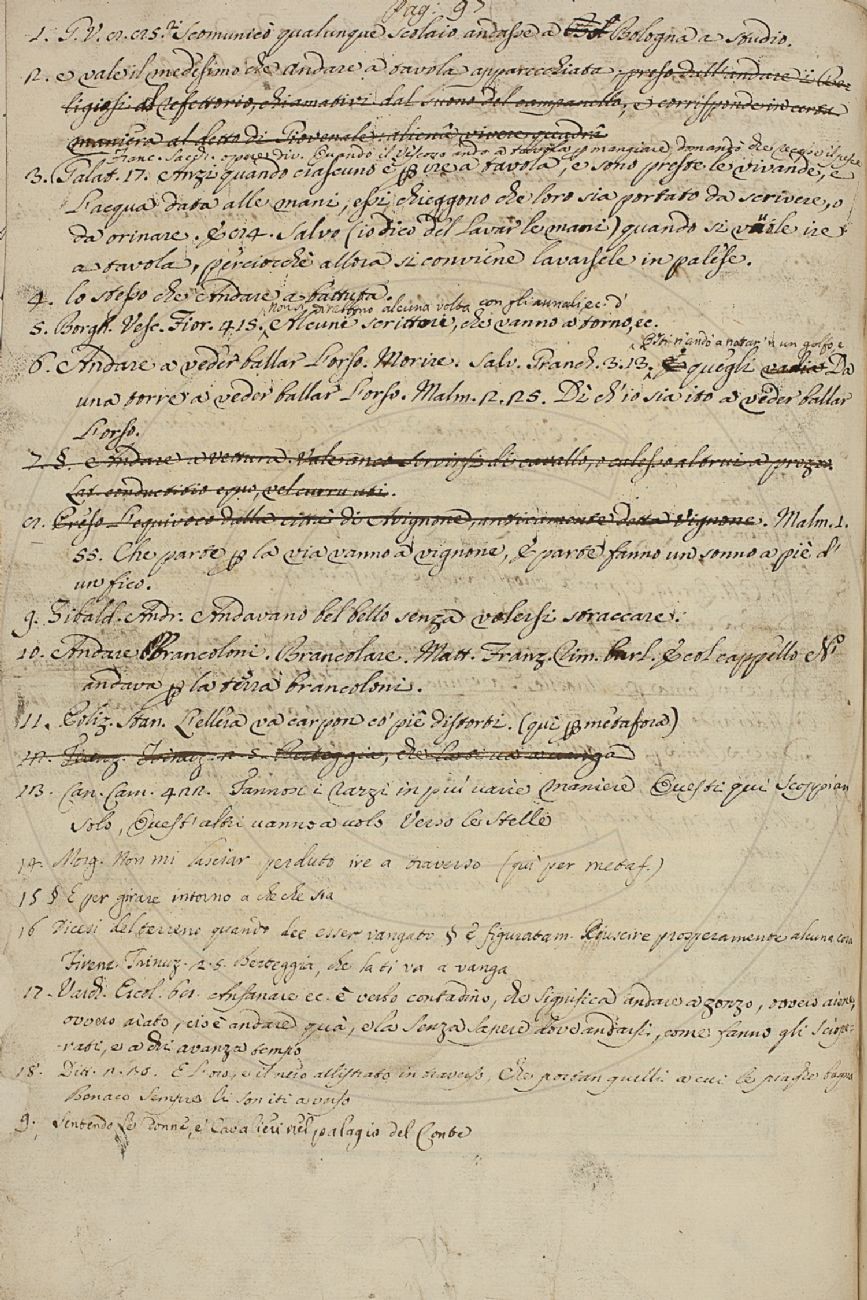 Pag: 97
1. G. V. 12. 125. Scomunicò qualunque Scolaio andasse a Bologna a studio.
2. e vale il medesimo che andare a tavola apparecchiata; preso dall'andare i Re-
ligiosi al refettorio, chiamativi dal suono del campanello, e corrisponde in certa
maniera al detto di Giovenale: alienâ vivere quadrâ
Franc. Sacch. op. div. Quando il Vescovo andò a tavola p mangiare, domandò che
3. Galat. 17. Anzi quando ciascuno è p ire a tavola, e sono preste le vivande, e
l'acqua data alle mani, essi chieggono che loro sia portato da scrivere, o
da orinare. E 24. Salvo (io dico del lavar le mani) quando si vuole ire
a tavola, perciocchè allora si conviene lavarsele in palese.
4. lo stesso che Andare a battuta.
non si aretono alcuna volta con gli annali, ec. d'
5. Borgh. Vesc. Fior. 415. Alcune scritture, che vanno a torno, ec.
n'andò a notar'n un golfo, e
6. Andare a veder ballar l'orso. Morire. Salv. Granch. 3. 13. E quegli Da
una torre a veder ballar l'orso. Malm. 2. 25. Di ch'io sia ito a veder ballar
l'orso.
7. §. Andare a vettura. Vale anco Servirsi di cavallo, o calesso altrui a prezzo.
Lat. conductitio equo, vel curru uti.
Preso l'equivoco dalla città di Avignone, anticamente detta Vignone. Malm. 1.
55. Che parte p la via vanno a vignone, E parte fanno un sonno a piè d'
un fico.
9. Sibald. Andr. Andavano bel bello senza volersi straccare.
10. Andare Brancoloni. Brancolare. Matt. Franz. rim. burl. E col cappello
andava p la terra brancoloni.
11. Poliz. Stan. L'ellera va carpon co' piè distorti. (qui p metafora)
12. Firenz. Trinuz. 2. 5. Berteggia, che la ti va a vanga
13. Can. Carn. 422. Fannosi i razzi in più varie maniere Questi qui Scoppian
solo, Quest'altri vanno a volo Verso le Stelle
14. Morg. Non mi lasciar perduto ire a traverso (qui per metaf.)
15 § E per girare intorno a che che sia
16 Dicesi del terreno quando dee esser vangato § E figuratam. Riuscire prosperamente alcuna cosa
Firenz. Trinuz. 2. 5. Berteggia, che la ti va a vanga
17. Varch. Ercol. Ansanare ec. è verbo contadino, che significa andare a zonzo, ovvero aione,
ovvero aiato, cioè andare quà, e la senza sapere dove andarsi, come fanno gli Sciope-
rati, e a chi avanza tempo
18. Ditt. E l'oro, e il nero allistrato in traverso, Che portan quelli a cui le piaghe
Bonaco Sempre li son iti a verso
9. Sentendo le donne, e Cavalieri nel palagio del Conte